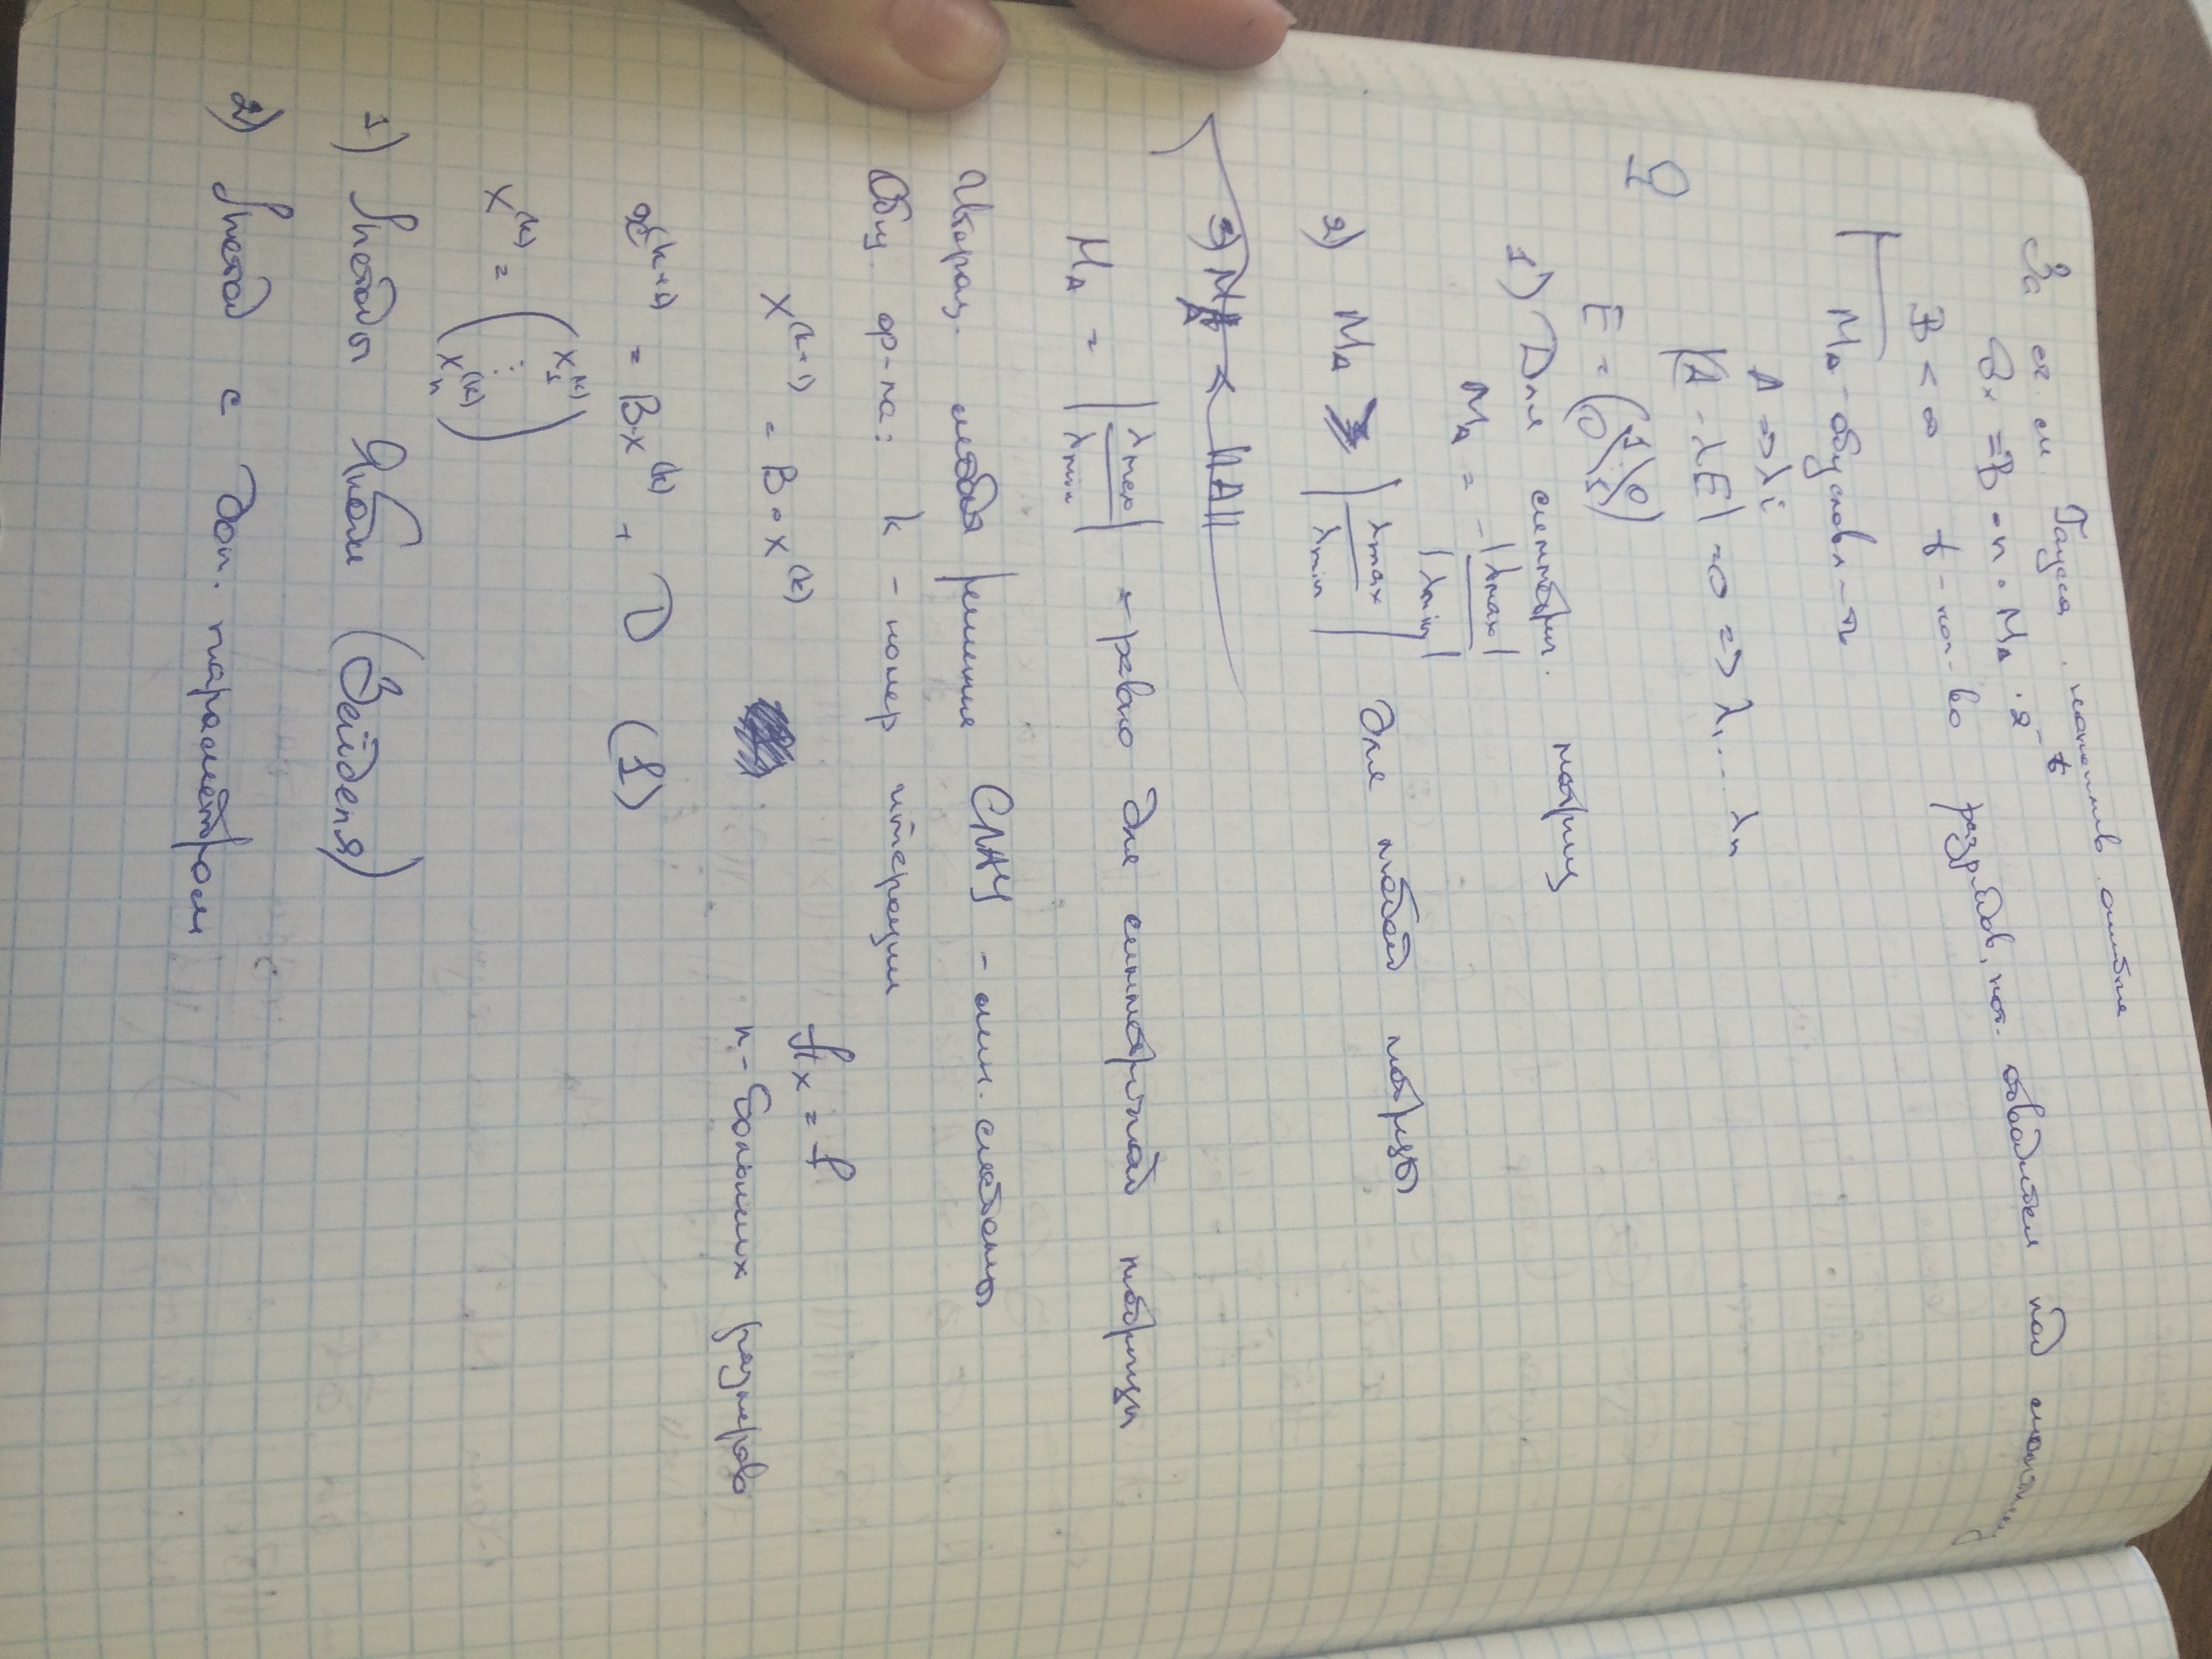 За сч. м. Гаусса накоплив. ошибка
δx = B · n · M_A · 2^{-t}
B < ∞ t - кол-во разрядов, кот. отводится под
M_A - обусловл-ть
A => λi
|A - λE| = 0 => λ1 ... λn
E = (1 0 0 1)
1) Для симметрич. матриц
M_A = |λmax| / |λmin|
2) M_A ≥ |λmax / λmin| для любой матрицы
3) M_A < ||A||
M_A = |λmax / λmin| - равно для симметричной матрицы
Итерац. метод решения СЛАУ - лин. системы
Общ. ф-ла: k - номер итерации
Ax = f
x^{(k+1)} = B · x^{(k)}
n - больших размеров
x^{(k+1)} = B·x^{(k)} + D (1)
x^{(k)} = (x_1^{(k)} ⋮ x_n^{(k)})
1) Методы Якоби (Зейделя)
2) Метод с доп. параметром